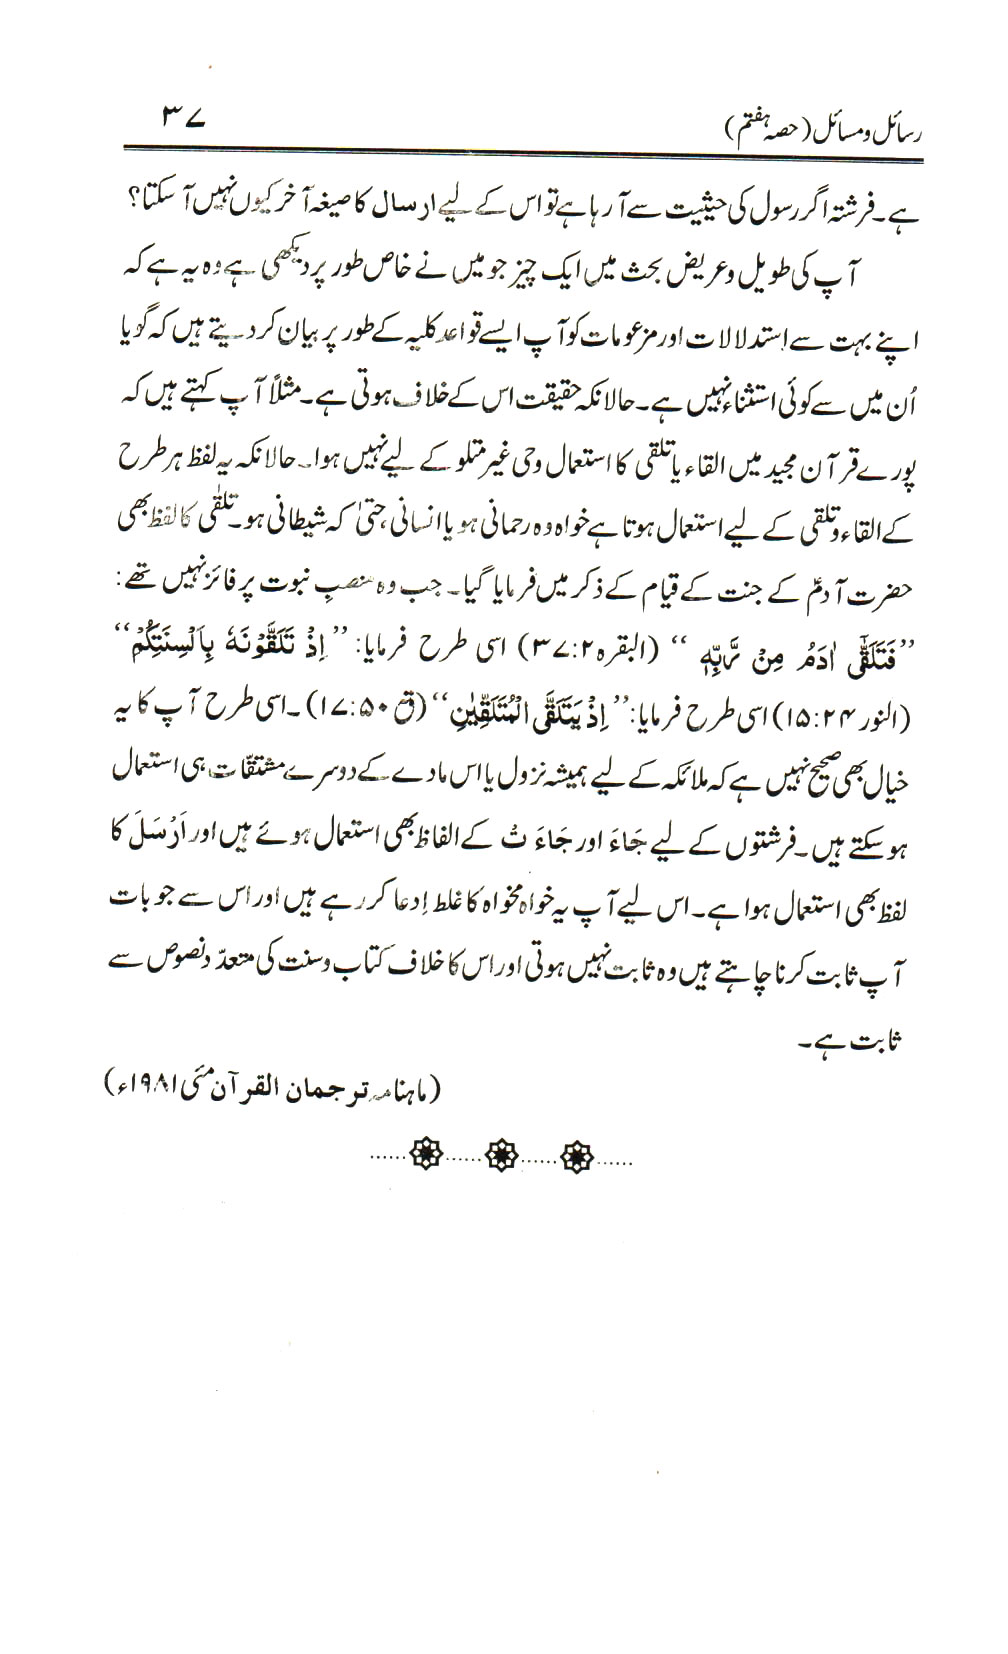 رسائل ومسائل (حصہ ہفتم) ۳۷
ہے۔ فرشتہ اگر رسول کی حیثیت سے آ رہا ہے تو اس کے لیے ارسال کا صیغہ آخر کیوں نہیں آ سکتا؟
آپ کی طویل وعریض بحث میں ایک چیز جو میں نے خاص طور پر دیکھی ہے وہ یہ ہے کہ
اپنے بہت سے استدلالات اور مزعومات کو آپ ایسے قواعد کلیہ کے طور پر بیان کر دیتے ہیں کہ گویا
اُن میں سے کوئی استثناء نہیں ہے۔ حالانکہ حقیقت اس کے خلاف ہوتی ہے۔ مثلاً آپ کہتے ہیں کہ
پورے قرآن مجید میں القاء یا تلقی کا استعمال وحی غیر متلو کے لیے نہیں ہوا۔ حالانکہ یہ لفظ ہر طرح
کے القاء و تلقی کے لیے استعمال ہوتا ہے خواہ وہ رحمانی ہو یا انسانی، حتیٰ کہ شیطانی ہو۔ تلقّٰی کا لفظ بھی
حضرت آدمؑ کے جنت کے قیام کے ذکر میں فرمایا گیا۔ جب وہ منصبِ نبوت پر فائز نہیں تھے:
”فَتَلَقّٰٓى اٰدَمُ مِنْ رَّبِّهٖ“ (البقرہ ۲:۳۷) اسی طرح فرمایا: ”اِذْ تَلَقَّوْنَهٗ بِاَلْسِنَتِكُمْ“
(النور ۲۴:۱۵) اسی طرح فرمایا: ”اِذْ يَتَلَقَّى الْمُتَلَقِّيٰنِ“ (قٓ ۵۰:۱۷)۔ اسی طرح آپ کا یہ
خیال بھی صحیح نہیں ہے کہ ملائکہ کے لیے ہمیشہ نزول یا اس مادے کے دوسرے مشتقات ہی استعمال
ہو سکتے ہیں۔ فرشتوں کے لیے جَاءَ اور جَاءَ تْ کے الفاظ بھی استعمال ہوئے ہیں اور اَرْسَلَ کا
لفظ بھی استعمال ہوا ہے۔ اس لیے آپ یہ خواہ مخواہ کا غلط اِدعا کر رہے ہیں اور اس سے جو بات
آپ ثابت کرنا چاہتے ہیں وہ ثابت نہیں ہوتی اور اس کا خلاف کتاب وسنت کی متعدّد نصوص سے
ثابت ہے۔
(ماہنامہ ترجمان القرآن مئی ۱۹۸۱ء)